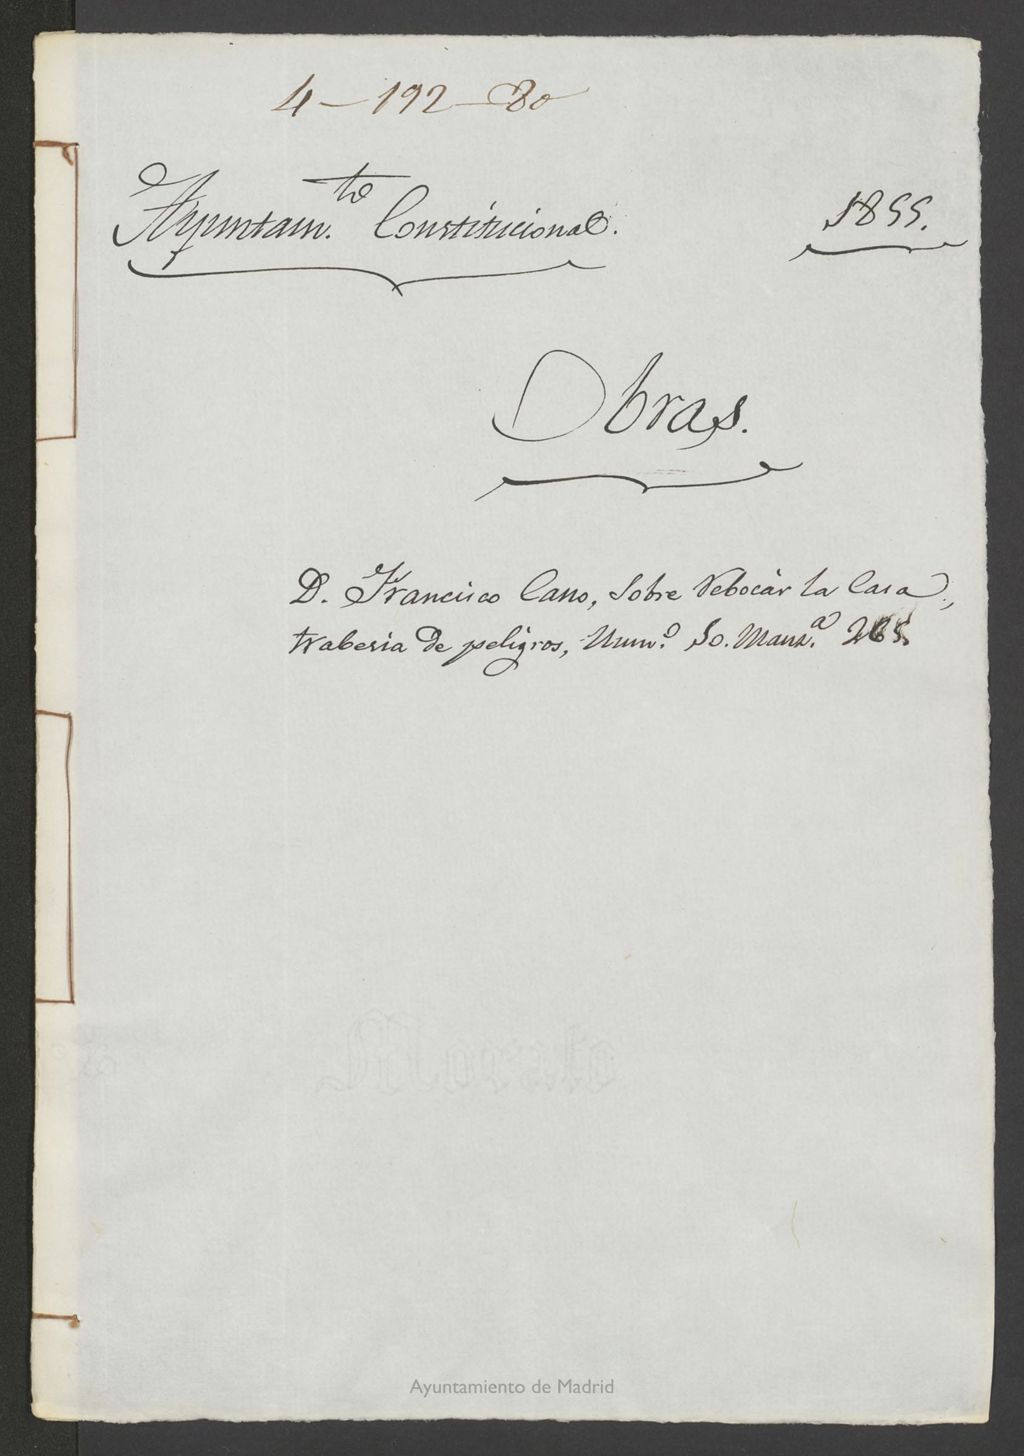 4-192-80
Ayuntam.to Constitucional.
1855.
Obras.
D. Francisco Cano, Sobre Rebocár la Casa,
trabesia de peligros, Num.o 10. Manz.a 265.
Morato
Ayuntamiento de Madrid